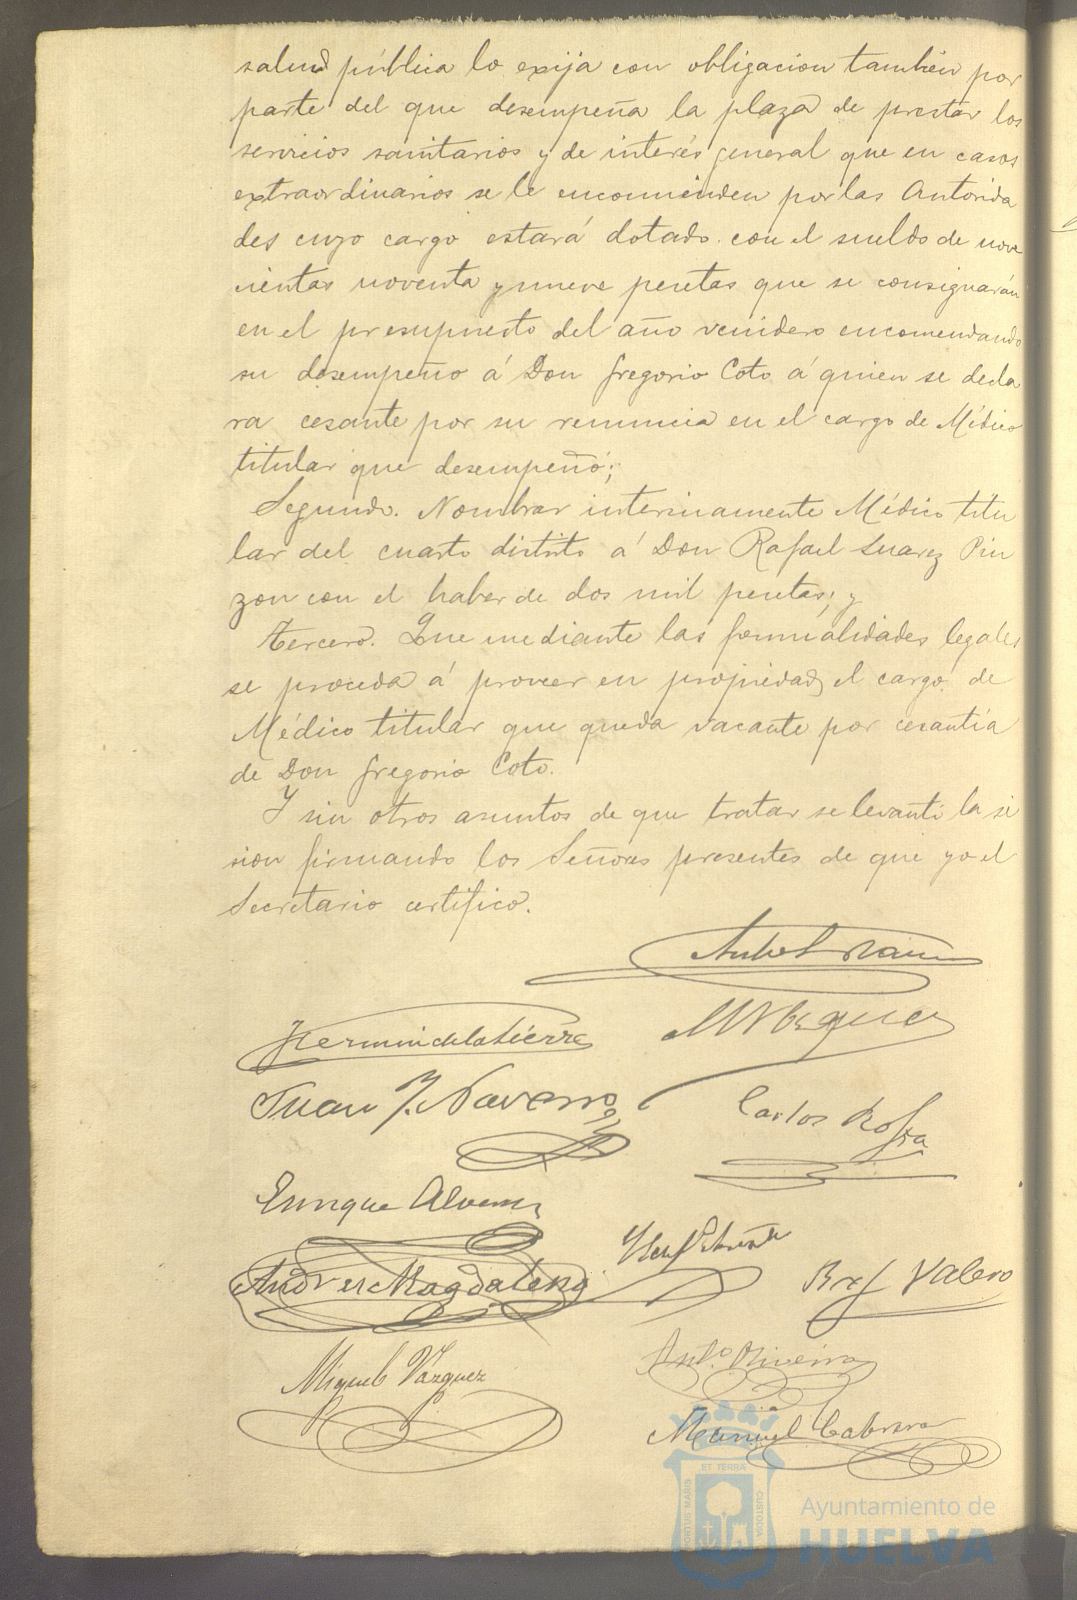 salud pública lo exija con obligacion tambien por
parte del que desempeña la plaza de prestar los
servicios sanitarios y de interés general que en casos
extraordinarios se le encomienden por las Autorida
des cuyo cargo estará dotado con el sueldo de nove
cientas noventa y nueve pesetas que se consignarán
en el presupuesto del año venidero encomendando
su desempeño á Don Gregorio Coto á quien se decla
ra cesante por su renuncia en el cargo de Médico
titular que desempeñó;
Segundo. Nombrar interinamente Médico titu
lar del cuarto distrito á Don Rafael Suarez Pin
zon con el haber de dos mil pesetas; y
Tercero. Que mediante las formalidades legales
se proceda á proveer en propiedad el cargo de
Médico titular que queda vacante por cesantía
de Don Gregorio Coto.
Y sin otros asuntos de que tratar se levantó la se
sion firmando los Señores presentes de que yo el
Secretario certifico.
Fermin de la Sierra
Juan J. Navarro
Carlos
Enrique
Andres Magdaleno
Valero
Miguel Vázquez
Antº Oliveira
Manuel Cabrera
PORTUS MARIS ET TERRÆ CUSTODIA
Ayuntamiento de
HUELVA